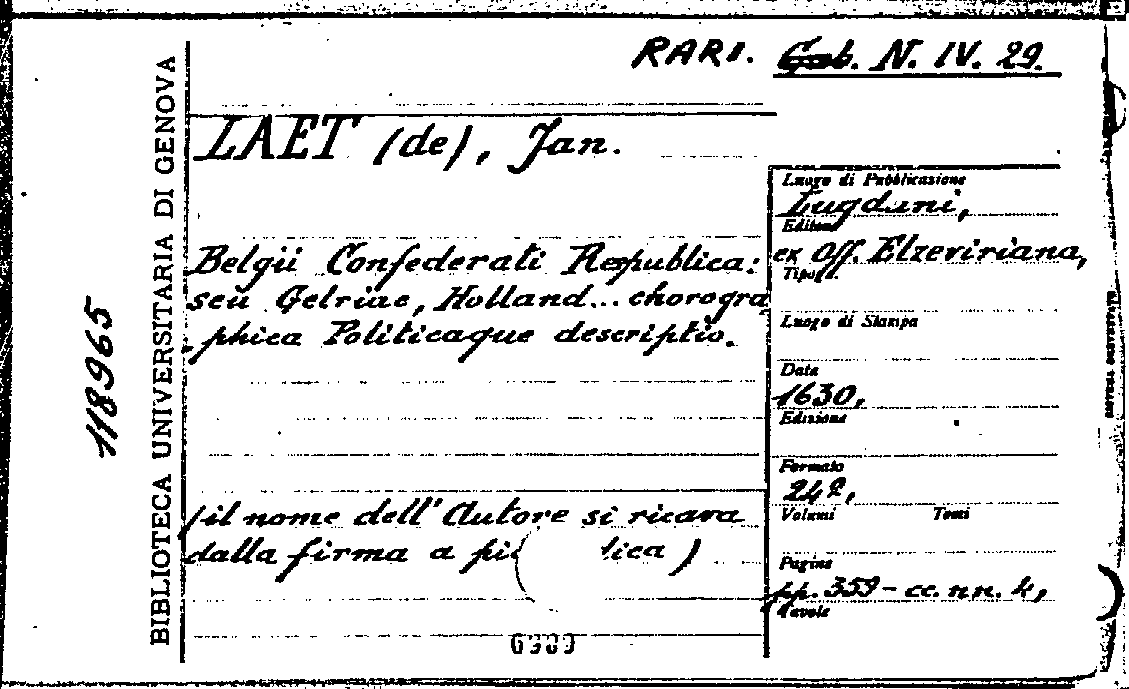 RARI. Gab. N. IV. 29.
BIBLIOTECA UNIVERSITARIA DI GENOVA
118965
LAET (de), Jan.
Belgii Confederati Respublica:
seu Gelriae, Holland... chorogra
phica Politicaque descriptio.
(il nome dell'Autore si ricava
dalla firma a
Luogo di Pubblicazione
Lugduni,
Editore
ex Off. Elzeviriana,
Tipogr.
Luogo di Stampa
Data
1630,
Edizione
Formato
24º,
Volumi Tomi
Pagine
pp. 359 - cc. nn. 4,
Tavole